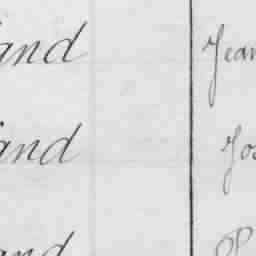 and Jean
and Jos
and